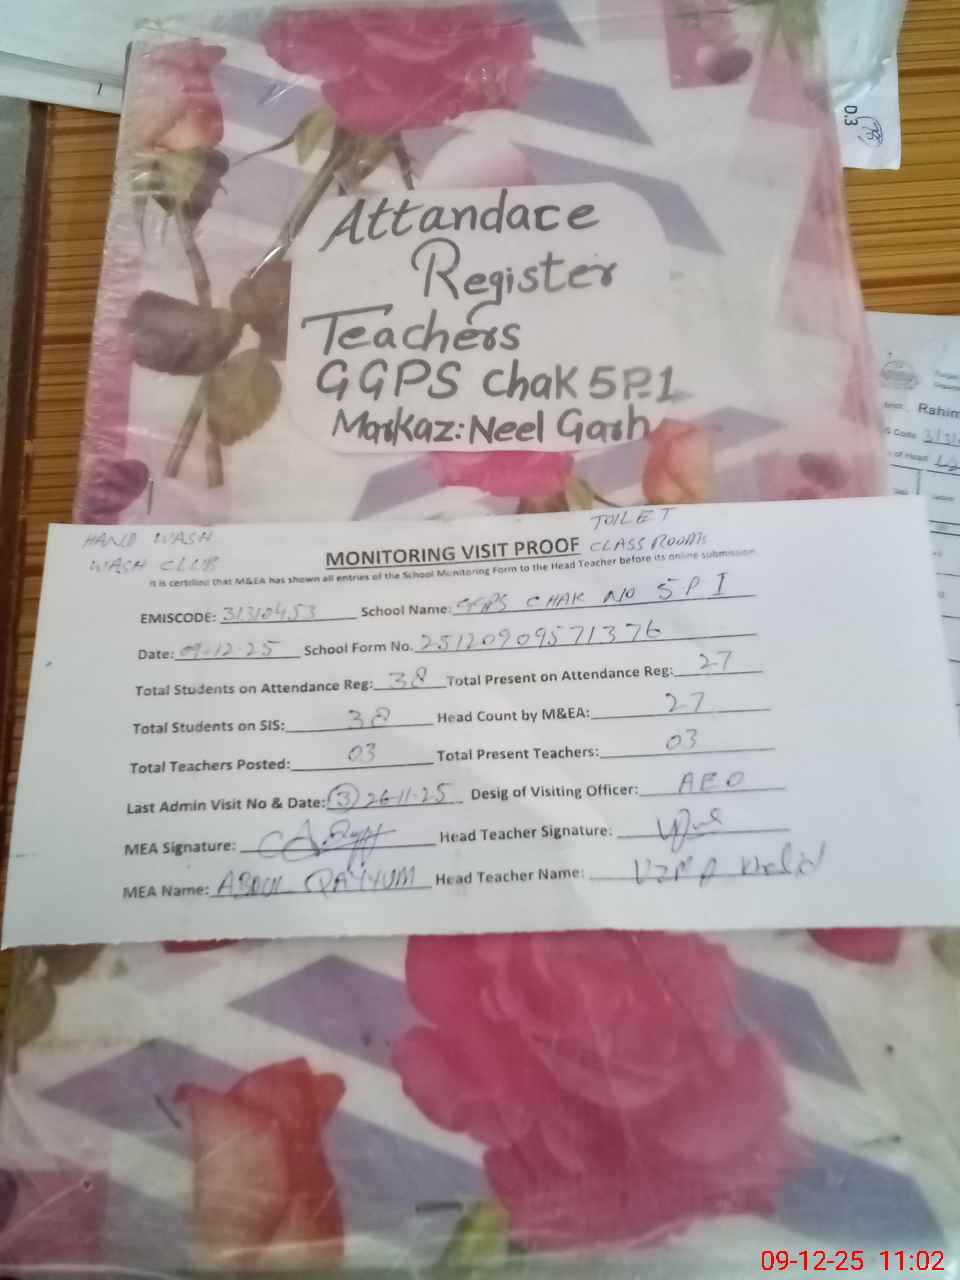 0.3
Attandace
Register
Teachers
GGPS Chak 5P.1
Markaz: Neel Garh
Rahim
HAND WASH
WASH CLUB
TOILET
CLASS ROOMS
MONITORING VISIT PROOF
It is certified that M&EA has shown all entries of the School Monitoring Form to the Head Teacher before its online submission
EMISCODE: 31310453 School Name: GGPS CHAK NO 5 P I
Date: 09-12-25 School Form No. 25120909571376
Total Students on Attendance Reg: 38 Total Present on Attendance Reg: 27
Total Students on SIS: 38 Head Count by M&EA: 27
Total Teachers Posted: 03 Total Present Teachers: 03
Last Admin Visit No & Date: 3 26-11-25 Desig of Visiting Officer: AEO
MEA Signature: Head Teacher Signature:
MEA Name: ABDUL QAYYUM Head Teacher Name: UZMA Khalid
09-12-25 11:02